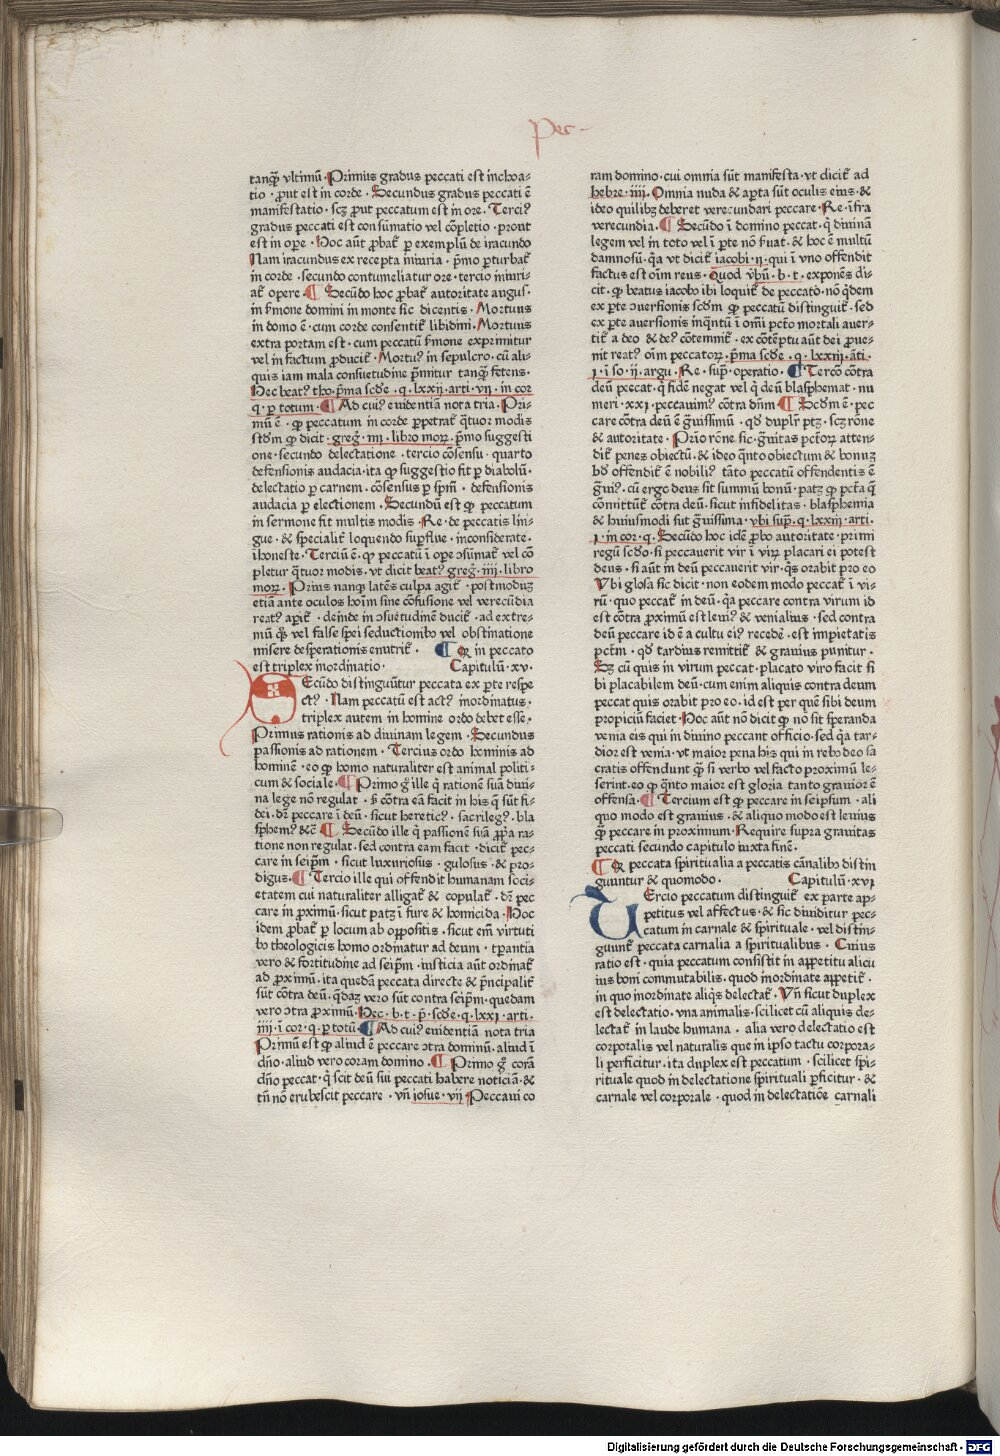 Pec
tanq̄ȝ vltimū · Primus gradus peccati est inchoa⸗
tio · ꝓut est in corde · Secundus gradus peccati ē
manifestatio · scȝ ꝓut peccatum est in ore · Terciꝰ
gradus peccati est consūmatio vel cōpletio · prout
est in oꝑe · Hoc aūt ꝓbat᷑ ꝑ exemplū de iracundo
Nam iracundus ex recepta iniuria · p̄mo ꝑturbat᷑
in corde · secundo contumeliatur ore · tercio iniuri⸗
at᷑ opere · ¶ Secūdo hoc ꝓbat᷑ autoritate augus·
in s̄mone domini in monte sic dicentis · Mortuus
in domo ē · cum corde consentit᷑ libidini · Mortuus
extra portam est · cum peccatū s̄mone exprimitur
vel in factum ꝓducit᷑ · Mortuꝰ in sepulcro · cū ali⸗
quis iam mala consuetudine p̄mitur tanq̄ȝ fetens ·
Hec beatꝰ tho · p̄ma scd̄e · q · lxxij · arti · vij · in cor
q · ꝑ totum · ¶ Ad cuiꝰ euidentiā nota tria · Pri⸗
mū ē · ꝙ peccatum in corde ꝑpetrat᷑ q̄tuor modis
scd̄m ꝙ dicit · greḡ · iiij · libro moꝝ · p̄mo suggesti
one · secundo delectatione · tercio cōsensu · quarto
defensionis audacia · ita ꝙ suggestio fit ꝑ diabolū ·
delectatio ꝑ carnem · cōsensus ꝑ sp̄m · defensionis
audacia ꝑ electionem · Secundū est ꝙ peccatum
in sermone fit multis modis · Re · de peccatis lin⸗
gue · & specialit᷑ loquendo suꝑflue · inconsiderate ·
ihoneste · Terciū ē · ꝙ peccatū ī oꝑe ꝯsūmat᷑ vel cō
pletur q̄tuor modis · vt dicit beatꝰ greḡ · iiij · libro
moꝝ · Prius nanq̄ȝ latēs culpa agit᷑ · postmoduȝ
etiā ante oculos hoīm sine cōfusione vel verecūdia
reatꝰ aꝑit᷑ · deinde in ꝯsuetudinē ducit᷑ · ad extre⸗
mū q̄ȝ vel false spei seductionibȝ vel obstinatione
misere desperationis enutrit᷑ · ¶ Ꝙ in peccato
est triplex inordinatio · Capitulū · xv ·
SEcūdo distinguūtur peccata ex ꝑte respe
ctꝰ · Nam peccatū est actꝰ inordinatus ·
triplex autem in homine ordo debet esse ·
Primus rationis ad diuinam legem · Secundus
passionis ad rationem · Tercius ordo hominis ad
hominē · eo ꝙ homo naturaliter est animal politi⸗
cum & sociale · ¶ Primo ḡ ille q̄ rationē suā diui⸗
na lege nō regulat · s̄ cōtra eā facit in his q̄ sūt fi⸗
dei · dr̄ peccare ī deū · sicut hereticꝰ · sacrilegꝰ · bla
sphemꝰ &c̄ ¶ Secūdo ille q̄ passionē suā ꝓpa ra⸗
tione non regulat · sed contra eam facit · dicit᷑ pec⸗
care in seip̄m · sicut luxuriosus · gulosus · & pro⸗
digus · ¶ Tercio ille qui offendit humanam soci⸗
etatem cui naturaliter alligat᷑ & copulat᷑ · dr̄ pec
care in ꝓximū · sicut patȝ ī fure & homicida · Hoc
idem ꝓbat᷑ ꝑ locum ab oppositis · sicut em̄ virtuti
bȝ theologicis homo ordinatur ad deum · tꝑantia
vero & fortitudine ad seip̄m · iusticia aūt ordinat᷑
ad ꝓximū · ita quedā peccata directe & p̄ncipalit᷑
sūt cōtra deū · q̄daȝ vero sūt contra seip̄m · quedam
vero ꝯtra ꝓximū · Hec · b · t · p̄ · scd̄e · q · lxxi · arti ·
iiij · ī cor · q · ꝑ totū · ¶ Ad cuiꝰ euidentiā nota tria
Primū est ꝙ aliud ē peccare ꝯtra dominū · aliud ī
dn̄o · aliud vero coram domino · ¶ Primo ḡ corā
dn̄o peccat · q̄ scit deū sui peccati habere noticiā · &
tn̄ nō erubescit peccare · vn̄ iosue · vij · Peccaui co
ram domino · cui omnia sūt manifesta · vt dicit᷑ ad
hebre · iiij · Omnia nuda & aꝑta sūt oculis eius · &
ideo quilibȝ deberet verecundari peccare · Re · īfra
verecundia · ¶ Secūdo ī domino peccat · q̄ diuinā
legem vel in toto vel ī ꝑte nō s̄uat · & hoc ē multū
damnosū · q̄a vt dicit᷑ iacobi · ij · qui ī vno offendit
factus est oīm reus · Quod vb̄ū · b · t · exponēs di⸗
cit · ꝙ beatus iacobȝ ibi loquit᷑ de peccato · nō q̄dem
ex ꝑte ꝯuersionis scd̄m ꝙ peccatū distinguit᷑ · sed
ex ꝑte auersionis inq̄ntū ī om̄i pct̄o mortali auer⸗
tit᷑ a deo & deꝰ cōtemnit᷑ · ex cōtēptu aūt dei ꝓue⸗
nit reatꝰ oīm peccatoꝝ · p̄ma scd̄e · q · lxxiij · āti ·
i · ī so · ij · argu · Re · suꝑ · operatio · ¶ Tercō cōtra
deū peccat · q̄ fidē negat vel q̄ deū blasphemat · nu
meri · xxi · peccauimꝰ cōtra dn̄m ¶ Scd̄m ē · pec
care cōtra deū ē g̃uissimū · qd̄ duplr̄ ptȝ · scȝ rōne
& autoritate · Prīo rōne sic · g̃uitas pctōꝝ atten⸗
dit᷑ penes obiectū · & ideo q̄nto obiectum & bonuȝ
qd̄ offendit᷑ ē nobiliꝰ tāto peccatū offendentis ē
g̃uiꝰ · cū ergo deus sit summū bonū · patȝ ꝙ pct̄a q̄
cōmittūt᷑ cōtra deū · sicut infidelitas · blasphemia
& huiusmodi sūt g̃uissima · vbi suꝑ · q · lxxiij · arti ·
i · in cor · q · Secūdo hoc idē ꝓbo autoritate · primi
regū scd̄o · si peccauerit vir ī viꝝ placari ei potest
deus · si aūt in deū peccauerit vir · q̄s orabit pro eo
Vbi glosa sic dicit · non eodem modo peccat᷑ ī vi⸗
rū · quo peccat᷑ in deū · q̄a peccare contra virum id
est cōtra ꝓximū est leuiꝰ & venialius · sed contra
deū peccare id ē a cultu eiꝰ recedē · est impietatis
pct̄m · qd̄ tardius remittit᷑ & grauius punitur ·
Sȝ cū quis in virum peccat · placato viro facit si
bi placabilem deū · cum enim aliquis contra deum
peccat quis orabit pro eo · id est per quē sibi deum
propiciū faciet · Hoc aūt nō dicit ꝙ nō sit speranda
venia eis qui in diuino peccant officio · sed q̄a tar⸗
dior est venia · vt maior pena his qui in rebȝ deo sa
cratis offendunt q̄ȝ si verbo vel facto proximū le⸗
serint · eo ꝙ q̄nto maior est gloria tanto grauior ē
offensa · ¶ Tercium est ꝙ peccare in seipsum · ali
quo modo est grauius · & aliquo modo est leuius
q̄ȝ peccare in proximum · Require supra grauitas
peccati secundo capitulo iuxta finē ·
¶ Ꝙ peccata spiritualia a peccatis cānalibȝ distin
guuntur & quomodo · Capitulū · xvi
TErcio peccatum distinguit᷑ ex parte ap⸗
petitus vel affectus · & sic diuiditur pec⸗
catum in carnale & spirituale · vel distin⸗
guunt᷑ peccata carnalia a spiritualibus · Cuius
ratio est · quia peccatum consistit in appetitu alicu
ius boni commutabilis · quod inordinate appetit᷑ ·
in quo inordinate aliq̄s delectat᷑ · Vn̄ sicut duplex
est delectatio · vna animalis · scilicet cū aliquis de⸗
lectat᷑ in laude humana · alia vero delectatio est
corporalis vel naturalis que in ipso tactu corpora⸗
li perficitur · ita duplex est peccatum · scilicet spi⸗
rituale quod in delectatione spirituali ꝑficitur · &
carnale vel corporale · quod in delectatiōe carnali
Digitalisierung gefördert durch die Deutsche Forschungsgemeinschaft · DFG